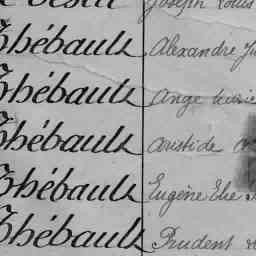 Joseph Louis
Thébault Alexandre
Thébault Ange
Thébault Aristide
Thébault Eugène Elie
Thébault Prudent